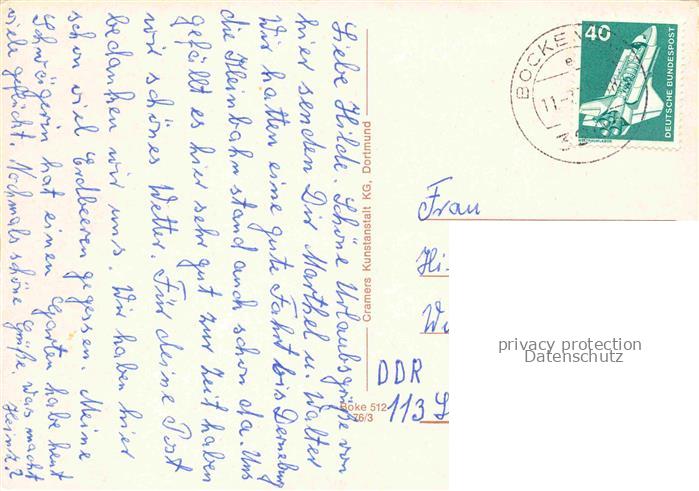 Liebe Hilde. Schöne Urlaubsgrüße von
hier senden Dir Marthel u. Walter
Wir hatten eine gute Fahrt bis Derneburg
die Kleinbahn stand auch schon da. Uns
gefällt es hier sehr gut zur Zeit haben
wir schönes Wetter. Für deine Post
bedanken wir uns. Wir haben hier
schon viel Erdbeeren gegessen. Meine
Schwägerin hat einen Garten habe heut
viele gepflückt. Nochmals schöne Grüße. was macht
Heinz?
Cramers Kunstanstalt KG, Dortmund
Boke 512
76/3
BOCKE
11.
40
DEUTSCHE BUNDESPOST
Frau
Hi
DDR
113
privacy protection
Datenschutz